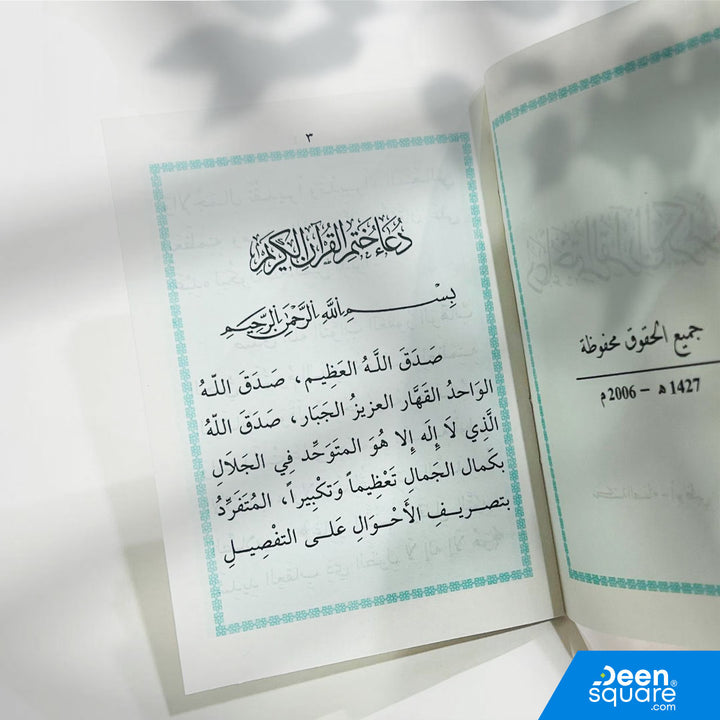 ٣
دُعَاءُ خَتْمِ القُرْآنِ الكَرِيمِ
بِسْمِ اللهِ الرَّحْمٰنِ الرَّحِيمِ
صَدَقَ اللَّهُ العَظِيم، صَدَقَ اللَّهُ
الوَاحدُ القَهَّار العزيزُ الجَبَار، صَدَقَ اللَّهُ
الَّذِي لَا إِلَه إلا هُوَ المتَوَحِّد فِي الجَلَالِ
بكَمال الجَمالِ تَعْظِيماً وَتَكْبِيراً، المُتَفَرِّدُ
بتصريفِ الأَحْوَالِ عَلى التفْصِيلِ
جميع الحقوق محفوظة
1427 هـ – 2006 م
Deen®
square
.com